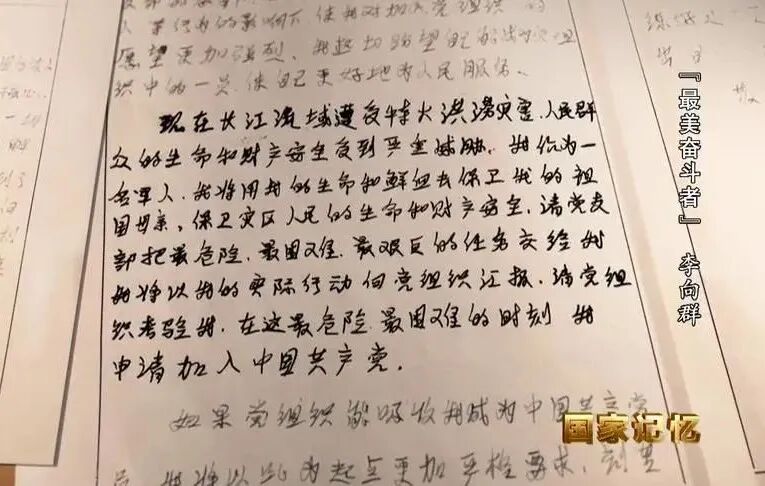 愿望更加强烈。我迫切盼望自己能成为党组
织中的一员,使自己更好地为人民服务。
现在长江流域遭受特大洪涝灾害,人民群
众的生命和财产安全受到严重威胁。我作为一
名军人,我将用我的生命和鲜血去保卫我的祖
国母亲,保卫灾区人民的生命和财产安全,请党支
部把最危险、最困难、最艰巨的任务交给我
我将以我的实际行动向党组织汇报,请党组
织考验我,在这最危险最困难的时刻 我
申请加入中国共产党。
如果党组织能吸收我成为中国共产党
员 我将以此为起点更加严格要求,刻苦
『最美奋斗者』 李向群
国家记忆